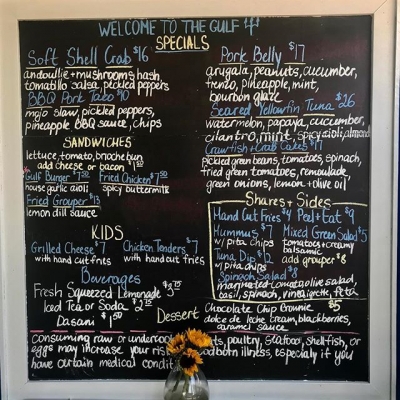 WELCOME TO THE GULF
SPECIALS
Soft Shell Crab $16
andouille + mushrooms hash,
tomatillo salsa, pickled peppers
BBQ Pork Taco $10
mojo slaw, pickled peppers,
pineapple BBQ sauce, chips
SANDWICHES
lettuce, tomato, brioche bun
add cheese or bacon $1.50
Gulf Burger $7.50 Fried Chicken $7.50
house garlic aioli spicy buttermilk
Fried Grouper $13
lemon dill sauce
KIDS
Grilled Cheese $7 Chicken Tenders $7
with hand cut fries with hand cut fries
Beverages
Fresh Squeezed Lemonade
Iced Tea or Soda
Dasani $1.50
Pork Belly $17
arugala, peanuts, cucumber,
pineapple, mint,
bourbon glaze
Seared Yellowfin Tuna $26
watermelon, papaya, cucumber,
cilantro, mint,
Crawfish + Crab Cakes
pickled green beans, tomatoes, spinach,
fried green tomatoes, remoulade,
green onions, lemon + olive oil
Shares + Sides
Hand Cut Fries $4 Peel + Eat $9
Hummus $7 Mixed Green Salad $5
w/ pita chips tomatoes + creamy
balsamic
Tuna Dip $12 add grouper $8
w/ pita chips
Spinach Salad $8
marinated tomato, olive salad,
basil, spinach, vinegarette, feta
Dessert Chocolate Chip Brownie $5
dolce de leche cream, blackberries,
caramel sauce
Consuming raw or poultry, seafood, shellfish, or
eggs may increase your illness, especialy if you
have certain medical